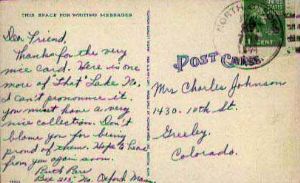 THIS SPACE FOR WRITING MESSAGES
Dear Friend,
Thanks for the very
nice card. Here is one
more of that Lake No.
I can't pronounce it.
you must have a very
nice collection. Don't
blame you for being
proud of them. Hope to hear
from you again soon.
Ruth
Box No. Oxford Mass
POST CARD
NORTH
CENT
Mrs Charles Johnson
1430-10th St.
Greeley
Colorado.